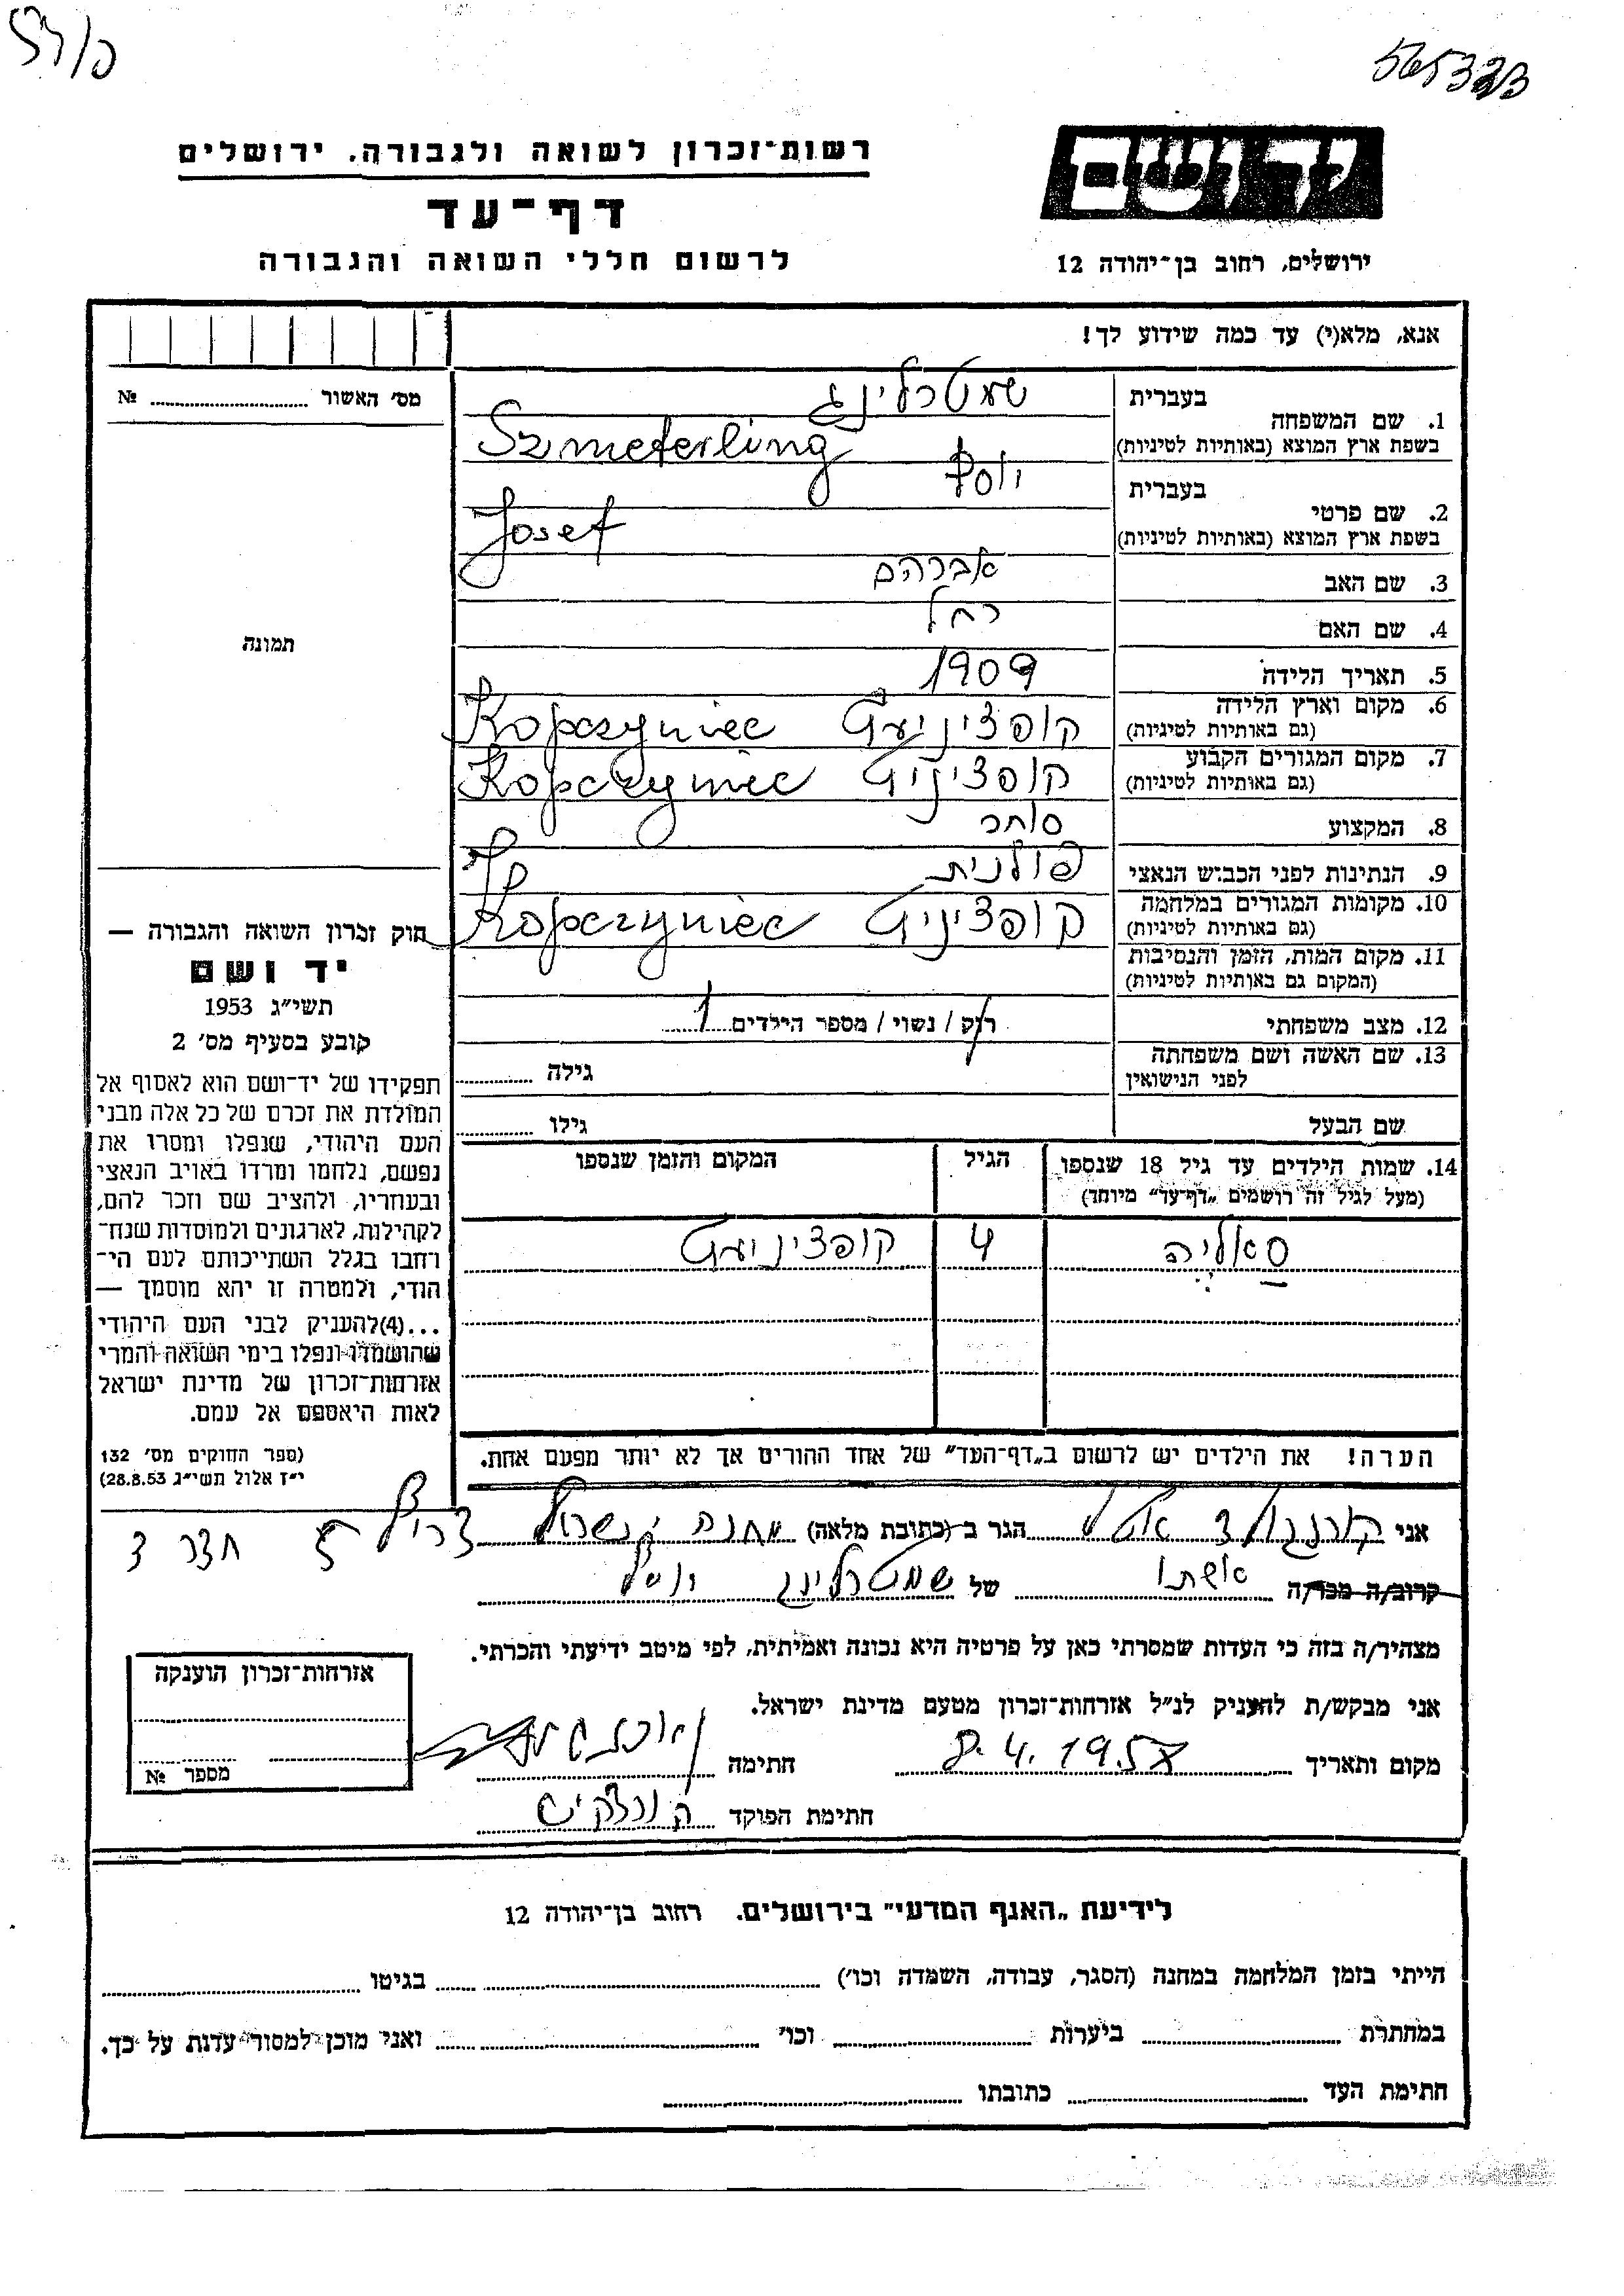 565323
רשות־זכרון לשואה ולגבורה, ירושלים
דף־עד
לרשום חללי השואה והגבורה
יד ושם
ירושלים, רחוב בן־יהודה 12
אנא, מלא(י) עד כמה שידוע לך!
בעברית שמטרלינג
1. שם המשפחה
בשפת ארץ המוצא (באותיות לטיניות) Szmeterling
בעברית יוסף
2. שם פרטי
בשפת ארץ המוצא (באותיות לטיניות) Josef
3. שם האב אברהם
4. שם האם רחל
5. תאריך הלידה 1909
6. מקום וארץ הלידה קופציניעץ Kopczyniec
(גם באותיות לטיניות)
7. מקום המגורים הקבוע קופציניץ Kopczyniec
(גם באותיות לטיניות)
8. המקצוע סוחר
9. הנתינות לפני הכבוש הנאצי פולנית
10. מקומות המגורים במלחמה קופציניץ Kopczyniec
(גם באותיות לטיניות)
11. מקום המות, הזמן והנסיבות
(המקום גם באותיות לטיניות)
12. מצב משפחתי רוק / נשוי / מספר הילדים 1
13. שם האשה ושם משפחתה
לפני הנישואין גילה
שם הבעל גילו
14. שמות הילדים עד גיל 18 שנספו הגיל המקום והזמן שנספו
(מעל לגיל זה רושמים „דף־עד" מיוחד)
סאליה 4 קופציניעץ
הערה! את הילדים יש לרשום ב„דף־העד" של אחד ההורים אך לא יותר מפעם אחת.
מס׳ האשור №
תמונה
חוק זכרון השואה והגבורה —
יד ושם
תשי״ג 1953
קובע בסעיף מס׳ 2
תפקידו של יד־ושם הוא לאסוף אל
המולדת את זכרם של כל אלה מבני
העם היהודי, שנפלו ומסרו את
נפשם, נלחמו ומרדו באויב הנאצי
ובעוזריו, ולהציב שם וזכר להם,
לקהילות, לארגונים ולמוסדות שנח־
רחבו בגלל השתייכותם לעם הי־
הודי, ולמטרה זו יהא מוסמך —
...(4)להעניק לבני העם היהודי
שהושמדו ונפלו בימי השואה והמרי
אזרחות־זכרון של מדינת ישראל
לאות היאספם אל עמם.
(ספר החוקים מס׳ 132
י״ז אלול תשי״ג 28.8.53)
אני הגר ב (כתובת מלאה) מחנה ישראל צריף 5 חדר 3
קרוב/ה מכר/ה אשתו של שמטרלינג יוסף
מצהיר/ה בזה כי העדות שמסרתי כאן על פרטיה היא נכונה ואמיתית, לפי מיטב ידיעתי והכרתי.
אני מבקש/ת להעניק לנ״ל אזרחות־זכרון מטעם מדינת ישראל.
מקום ותאריך 8.4.1957 חתימה
חתימת הפוקד
אזרחות־זכרון הוענקה
מספר №
לידיעת „האגף המדעי" בירושלים. רחוב בן־יהודה 12
הייתי בזמן המלחמה במחנה (הסגר, עבודה, השמדה וכו׳) בגיטו
במחתרת ביערות וכו׳ ואני מוכן למסור עדות על כך.
חתימת העד כתובתו